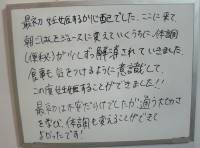 最初 妊娠するか心配でした。ここに来て、
朝ごはんをジュースに変えていくうちに、体調
(便秘)が少しずつ解消されていきました。
食事も気をつけるように意識して、
この度妊娠することができました!!
最初は不安だらけでしたが通う大切さ
を学び、体調も変えることができて
よかったです!